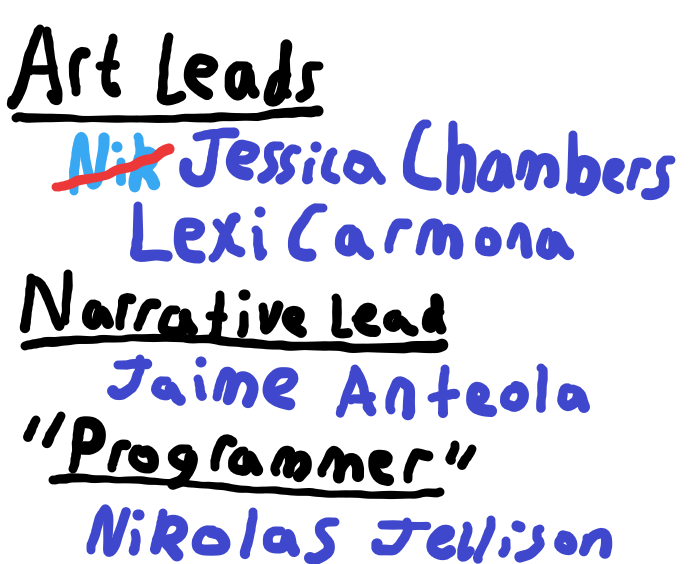 Art Leads
Nik Jessica Chambers
Lexi Carmona
Narrative Lead
Jaime Anteola
"Programmer"
Nikolas Jellison